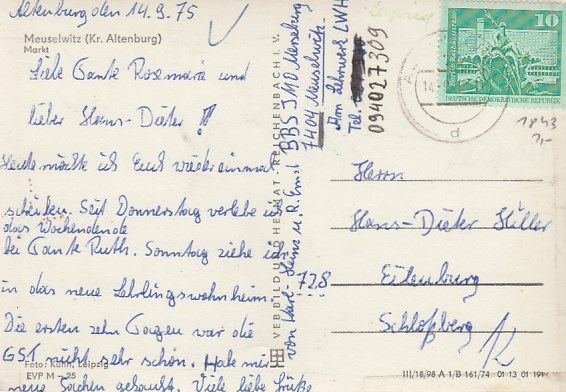 Altenburg den 14.9.75
Meuselwitz (Kr. Altenburg)
Markt
Liebe Tante Rosemarie und
lieber Hans-Dieter !!!
Heute möchte ich Euch wieder einmal
schreiben. Seit Donnerstag verlebe ich
das Wochenende
bei Tante Ruth. Sonntag ziehe ich
in das neue Lehrlingswohnheim.
Die ersten zehn Tage war die
GST nicht sehr schön. Habe mir
neue Sachen gekauft. Viele liebe Grüße
Foto: Kühn, Leipzig
EVP M -,25
von Karl-Heinz u. R. Ernst
VEB BILD UND HEIMAT · REICHENBACH I. V.
BBS J 10 Merseburg
7404 Meuselwitz
Am Lehrwerk LWH
Tel.
094027309
10
DEUTSCHE DEMOKRATISCHE REPUBLIK
14.
d
1843
1,-
Herrn
Hans-Dieter Hiller
728
Eilenburg
Schloßberg 12
III/18/98 A 1/B 161/74 01 13 01 191